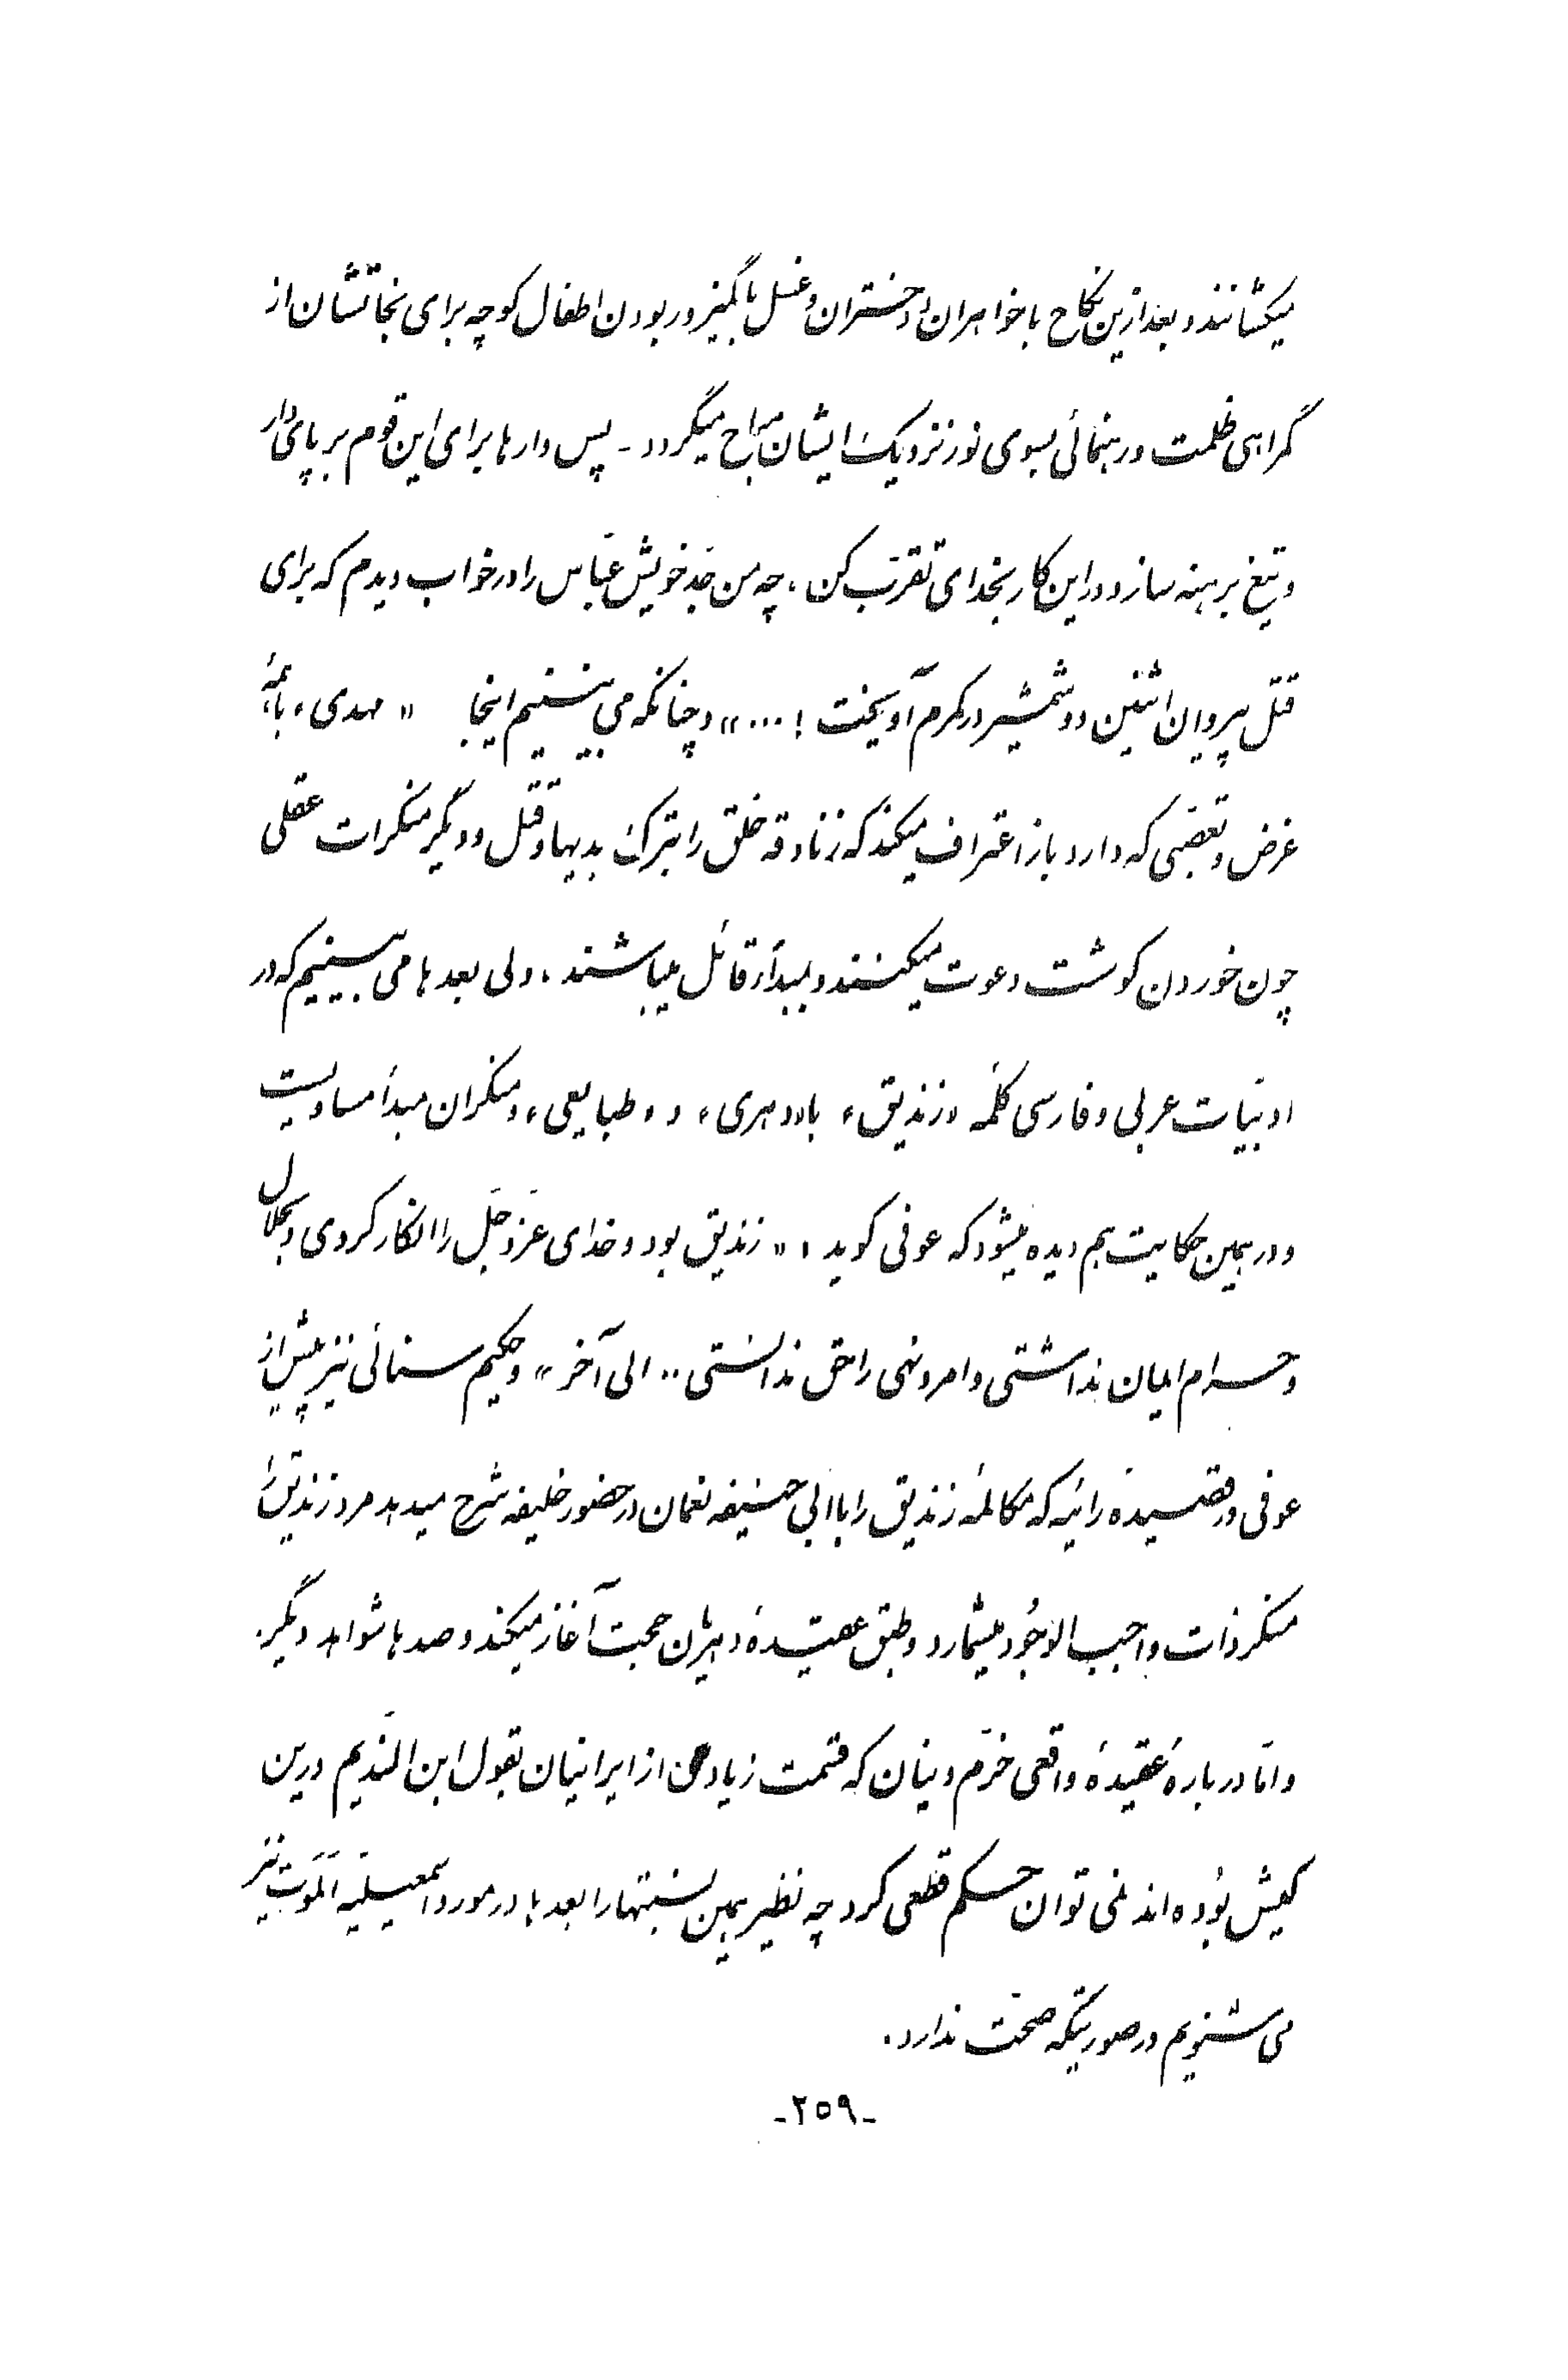 میکشانند و بعد ازین نکاح با خواهران و دختران و غسل با کمیز و ربودن اطفال کوچه برای نجاتشان از
گمراهی ظلمت و رهنمائی بسوی نور نزدیک ایشان مباح میگردد - پس دارها برای این قوم بر پای دار
و تیغ برهنه ساز و در این کار بخدای تقرب کن ، چه من جد خویش عباس را در خواب دیدم که برای
قتل پیروان اثنین دو شمشیر در کمرم آویخت ! ...» و چنانکه می بینیم اینجا « مهدی ، با همهٔ
غرض و تعصبی که دارد باز اعتراف میکند که زنادقه خلق را بترک بدیها و قتل و دیگر منکرات عقلی
چون خوردن گوشت دعوت میکنند و بمبدأ قائل میباشند ، ولی بعدها می بینیم که در
ادبیات عربی و فارسی کلمه «زندیق» با «دهری» و «طبایعی» و منکران مبدأ مساویست
و در همین حکایت هم دیده میشود که عوفی گوید : « زندیق بود و خدای عزّ و جلّ را انکار کردی و بحلال
و حرام ایمان نداشتی و امر و نهی را حق ندانستی .. الی آخر » و حکیم سنائی نیز پیش از
عوفی در قصیدهٔ رائیه که مکالمهٔ زندیق را با ابی حنیفه نعمان در حضور خلیفه شرح میدهد مرد زندیق را
منکر ذات واجب الوجود میشمارد و طبق عقیدهٔ دهریان حجت آغاز میکند و صدها شواهد دیگر.
و اما دربارهٔ عقیدهٔ واقعی خرّم دینان که قسمت زیادی از ایرانیان بقول ابن النّدیم درین
کیش بوده اند نمی توان حکم قطعی کرد چه نظیر همین نسبتها را بعدها در مورد اسمعیلیّه الموت نیز
می شنویم در صورتیکه صحّت ندارد .
-۲۵۹-